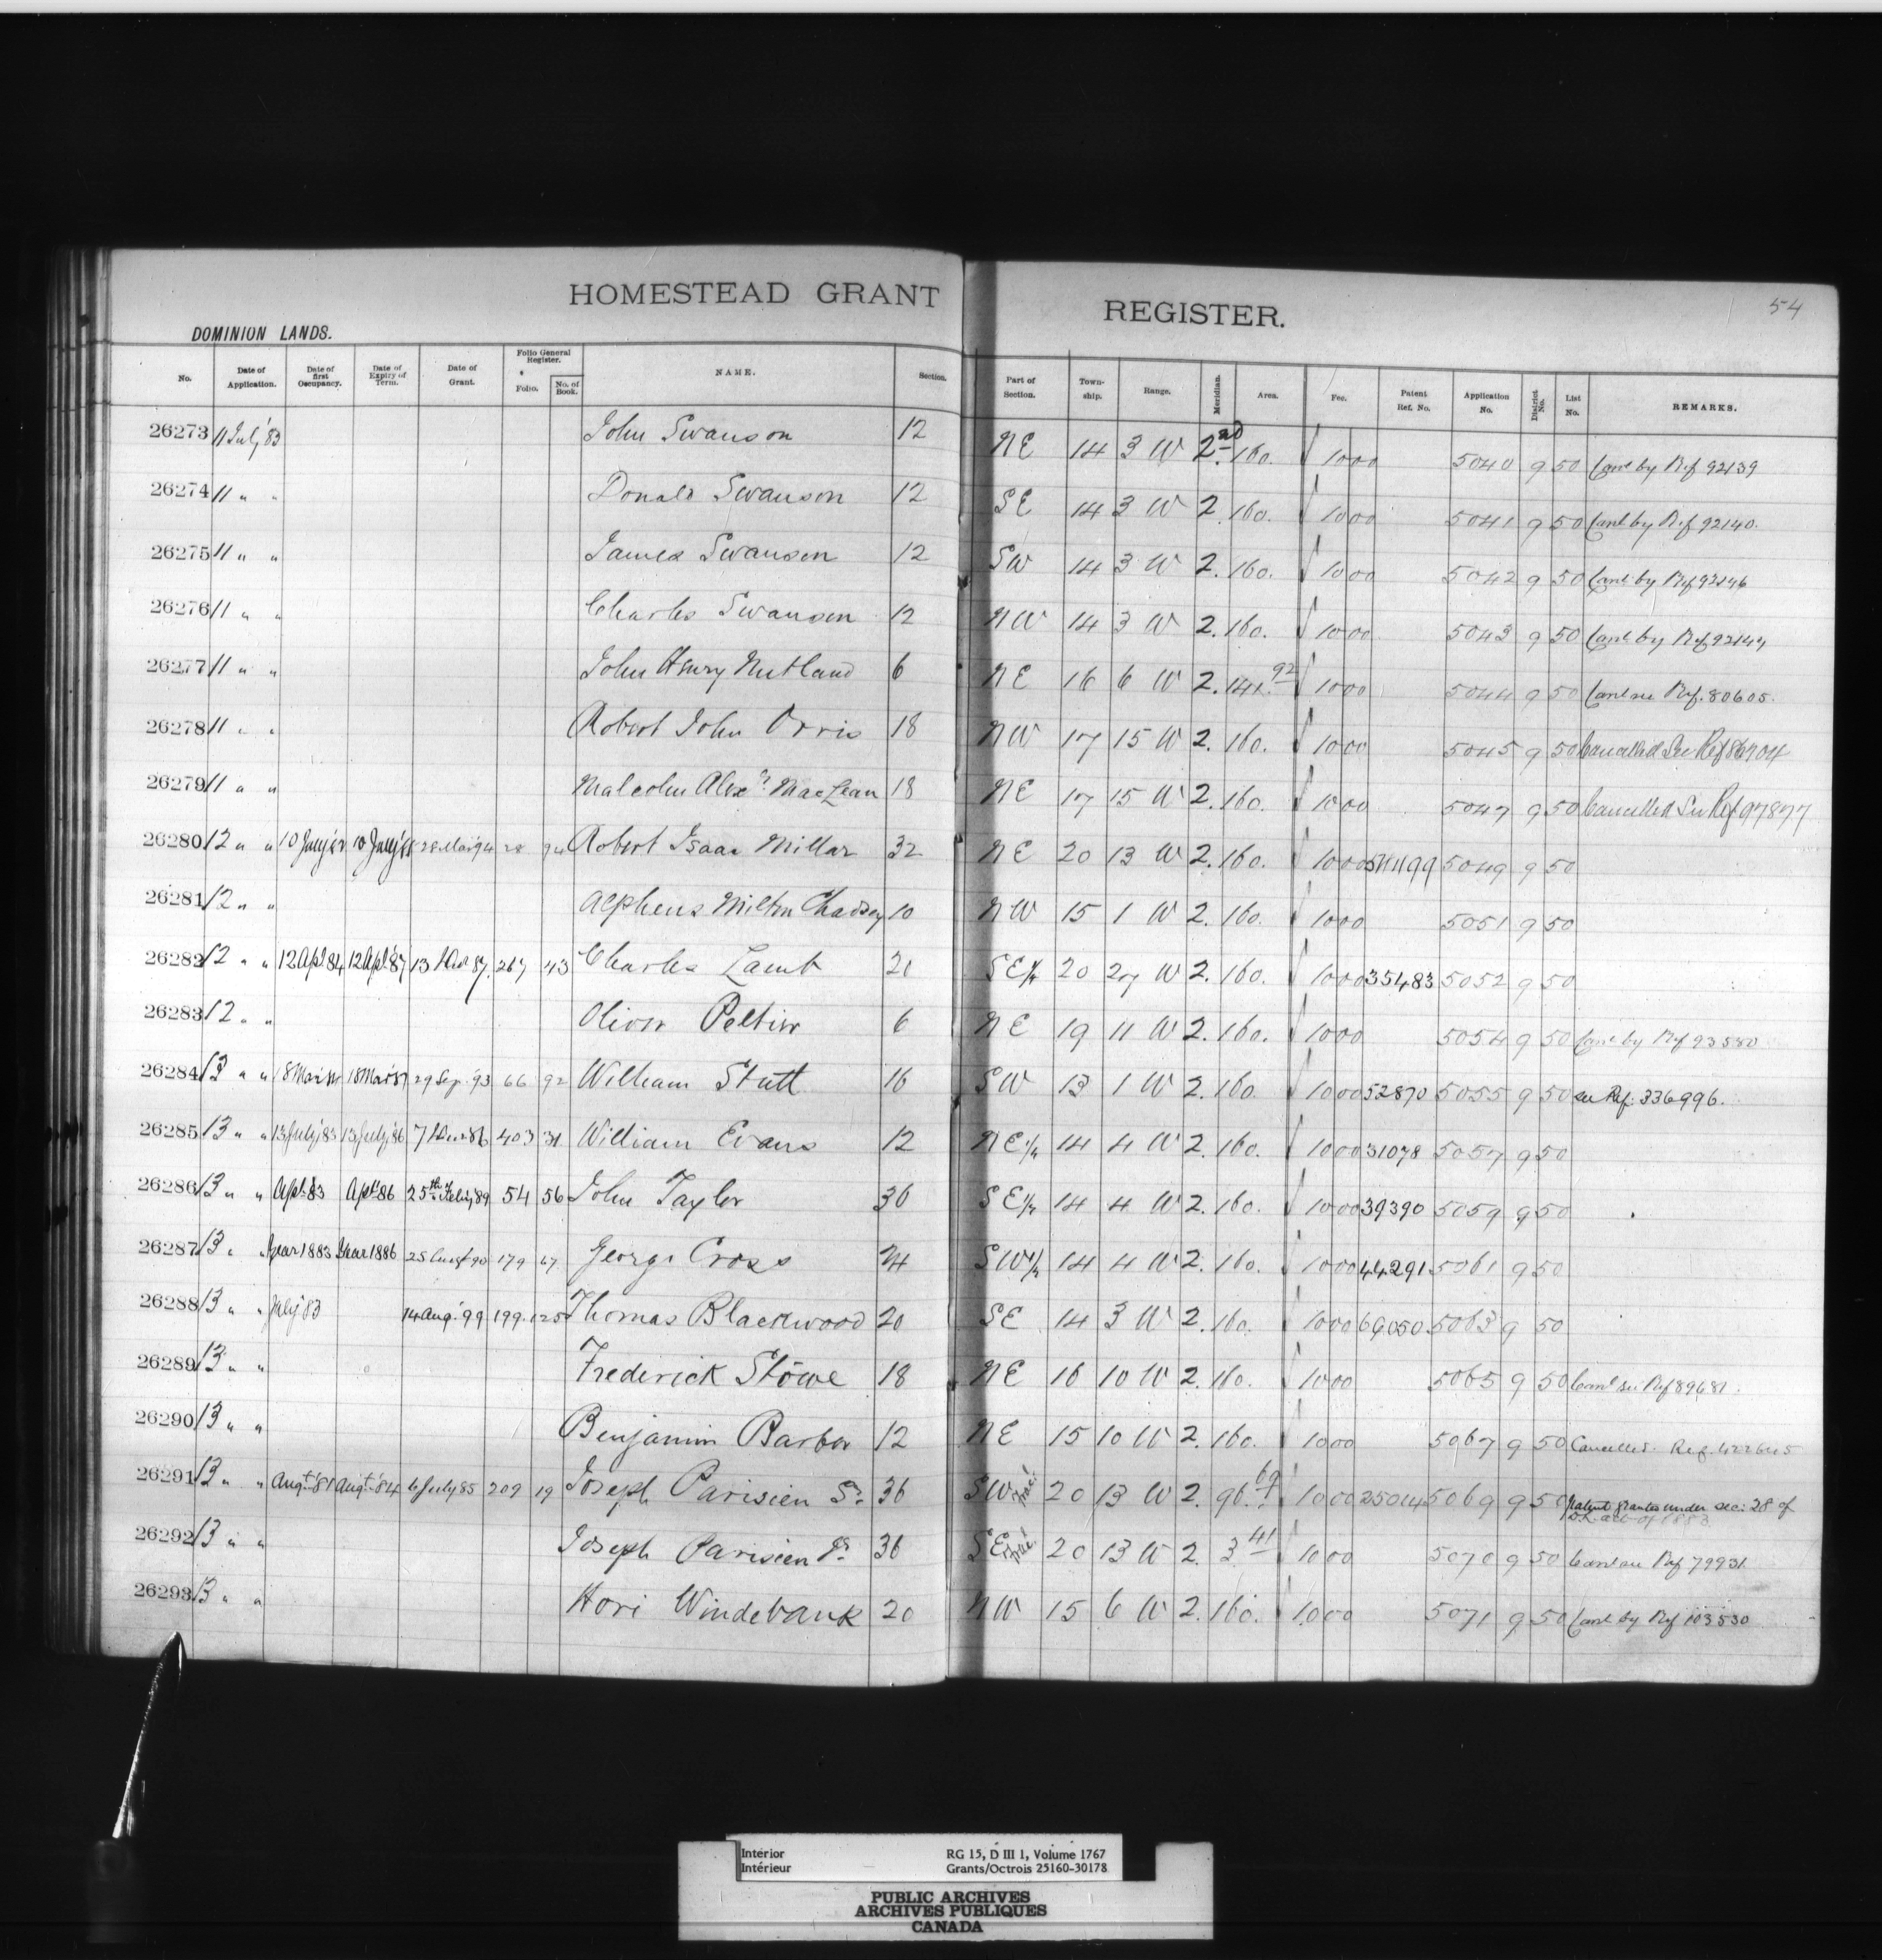 HOMESTEAD GRANT REGISTER.
54
DOMINION LANDS.
No. Date of Application. Date of first Occupancy. Date of Expiry of Term. Date of Grant. Folio General Register. Folio. No. of Book. NAME. Section. Part of Section. Town-ship. Range. Meridian. Area. Fee. Patent Ref. No. Application No. District No. List No. REMARKS.
26273 11 July '83 John Swanson 12 NE 14 3 W 2nd 160. 10 00 5040 9 50 Canc by Ref 92139
26274 11 " " Donald Swanson 12 SE 14 3 W 2. 160. 10 00 5041 9 50 Canc by Ref 92140.
26275 11 " " James Swanson 12 SW 14 3 W 2. 160. 10 00 5042 9 50 Canc by Ref 92146
26276 11 " " Charles Swanson 12 NW 14 3 W 2. 160. 10 00 5043 9 50 Canc by Ref
26277 11 " " John Henry Nutland 6 NE 16 6 W 2. 141.92 10 00 5044 9 50 Canc see Ref. 80605.
26278 11 " " Robert John Orris 18 NW 17 15 W 2. 160. 10 00 5045 9 50 Cancelled See Ref 86704
26279 11 " " Malcolm Alexr. MacLean 18 NE 17 15 W 2. 160. 10 00 5047 9 50 Cancelled See Ref 97877
26280 12 " " 10 July 10 July 28 Mar '94 28 94 Robert Isaac Millar 32 NE 20 13 W 2. 160. 10 00 5049 9 50
26281 12 " " Alpheus Milton Chadsey 10 NW 15 1 W 2. 160. 10 00 5051 9 50
26282 12 " " 12 Apl 84 12 Apl '87 13 87. 267 43 Charles Lamb 20 SE¼ 20 27 W 2. 160. 10 00 35483 5052 9 50
26283 12 " " Oliver Peltier 6 NE 19 11 W 2. 160. 10 00 5054 9 50 Canc by Ref 93580
26284 13 " " 18 Mar 18 Mar '87 29 Sep. '93 66 92 William Stutt 16 SW 13 1 W 2. 160. 10 00 52870 5055 9 50 see Ref: 336996.
26285 13 " " 13 July '83 13 July '86 7 86 403 31 William Evans 12 NE¼ 14 4 W 2. 160. 10 00 31078 5057 9 50
26286 13 " " Apl. 83 Apl. '86 25th Feby 89 54 56 John Taylor 36 SE¼ 14 4 W 2. 160. 10 00 39390 5059 9 50
26287 13 " " Year 1883 Year 1886 25 Augt 90 179 67 George Cross 24 SW¼ 14 4 W 2. 160. 10 00 44291 5061 9 50
26288 13 " " July '83 14 Aug. '99 199. 125 Thomas Blackwood 20 SE 14 3 W 2. 160. 10 00 69050 5063 9 50
26289 13 " " Frederick Stowe 18 NE 16 10 W 2. 160. 10 00 5065 9 50 Canc see Ref 89681.
26290 13 " " Benjamin Barber 12 NE 15 10 W 2. 160. 10 00 5067 9 50 Cancelled. Ref. 422645
26291 13 " " Augt. '81 Augt. '84 6 July 85 209 19 Joseph Parisien Sr. 36 SW Frac'l 20 13 W 2. 96.69 10 00 25014 5069 9 50 Patent granted under sec: 28 of
D.L. act of 1883
26292 13 " " Joseph Parisien Jr. 36 SE Frac'l 20 13 W 2. 3.41 10 00 5070 9 50 Canc see Ref 79931
26293 13 " " Hori Windebank 20 NW 15 6 W 2. 160. 10 00 5071 9 50 Canc by Ref 103530
Interior RG 15, D III 1, Volume 1767
Intérieur Grants/Octrois 25160-30178
PUBLIC ARCHIVES
ARCHIVES PUBLIQUES
CANADA